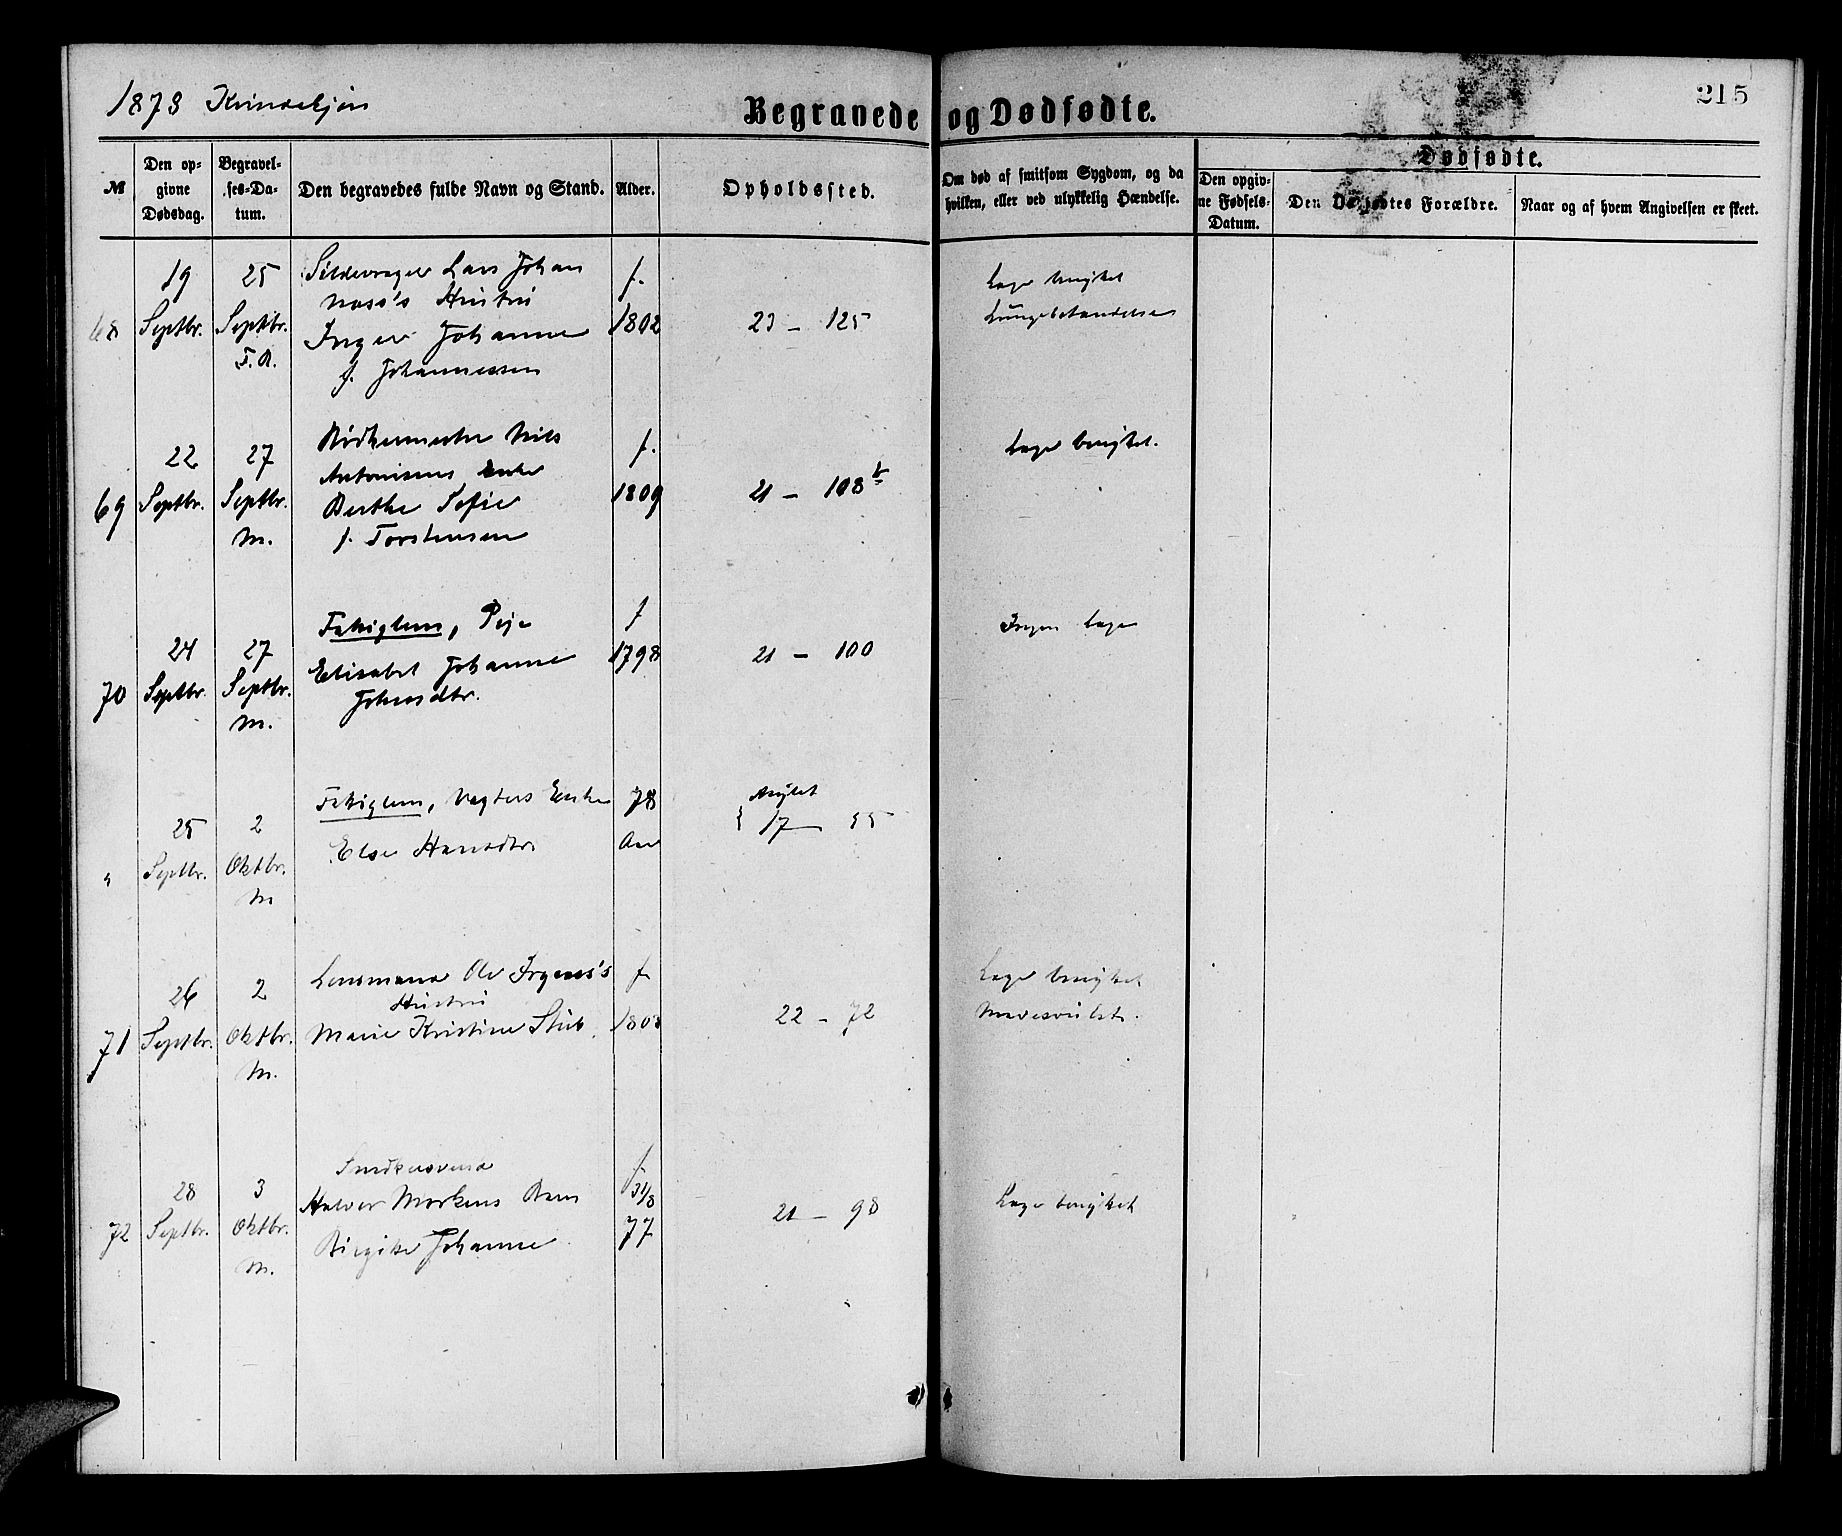 1878 Kvindekjøn
Begravede og Dødfødte.
215
№
Den op-
givne
Dødsdag.
Begravel-
ses-Da-
tum.
Den begravedes fulde Navn og Stand.
Alder.
Opholdssted.
Om død af smitsom Sygdom, og da
hvilken, eller ved ulykkelig Hændelse.
Dødfødte.
Den opgiv-
ne Fødsels-
Datum.
Den Dødfødtes Forældre.
Naar og af hvem Angivelsen er skeet.
68
19
Septbr.
25
Septbr.
F. R.
Lars Johan
Hustru
Inger Johanne
f. Johannessen
f.
1802
23 – 125
Læge benyttet
Lungebetændelse
69
22
Septbr.
27
Septbr.
M.
Bødkermester Nils
Antonisens Enke
Berthe Sofie
f. Torstensen
f.
1809
21 – 108 b
Læge benyttet.
70
24
Septbr.
27
Septbr.
M.
Fattiglem, Pige
Elisabet Johanne
Johnsdtr.
f
1798
21 – 100
Ingen Læge
"
25
Septbr.
2
Oktbr.
M
Fattiglem, Vægters Enke
Else Hansdtr.
78
Aar
Asylet
17 – 55
71
26
Septbr.
2
Oktbr.
M.
Lensmand Ole Irgens's
Hustru
Marie Kristine Stub.
f.
1808
22 – 72
Læge benyttet
Mavesvulst.
72
28
Septbr.
3
Oktbr.
M.
Snedkersvend
Halvor Markens Barn
Birgitte Johanne
f.
31/8
77
21 – 98
Læge benyttet